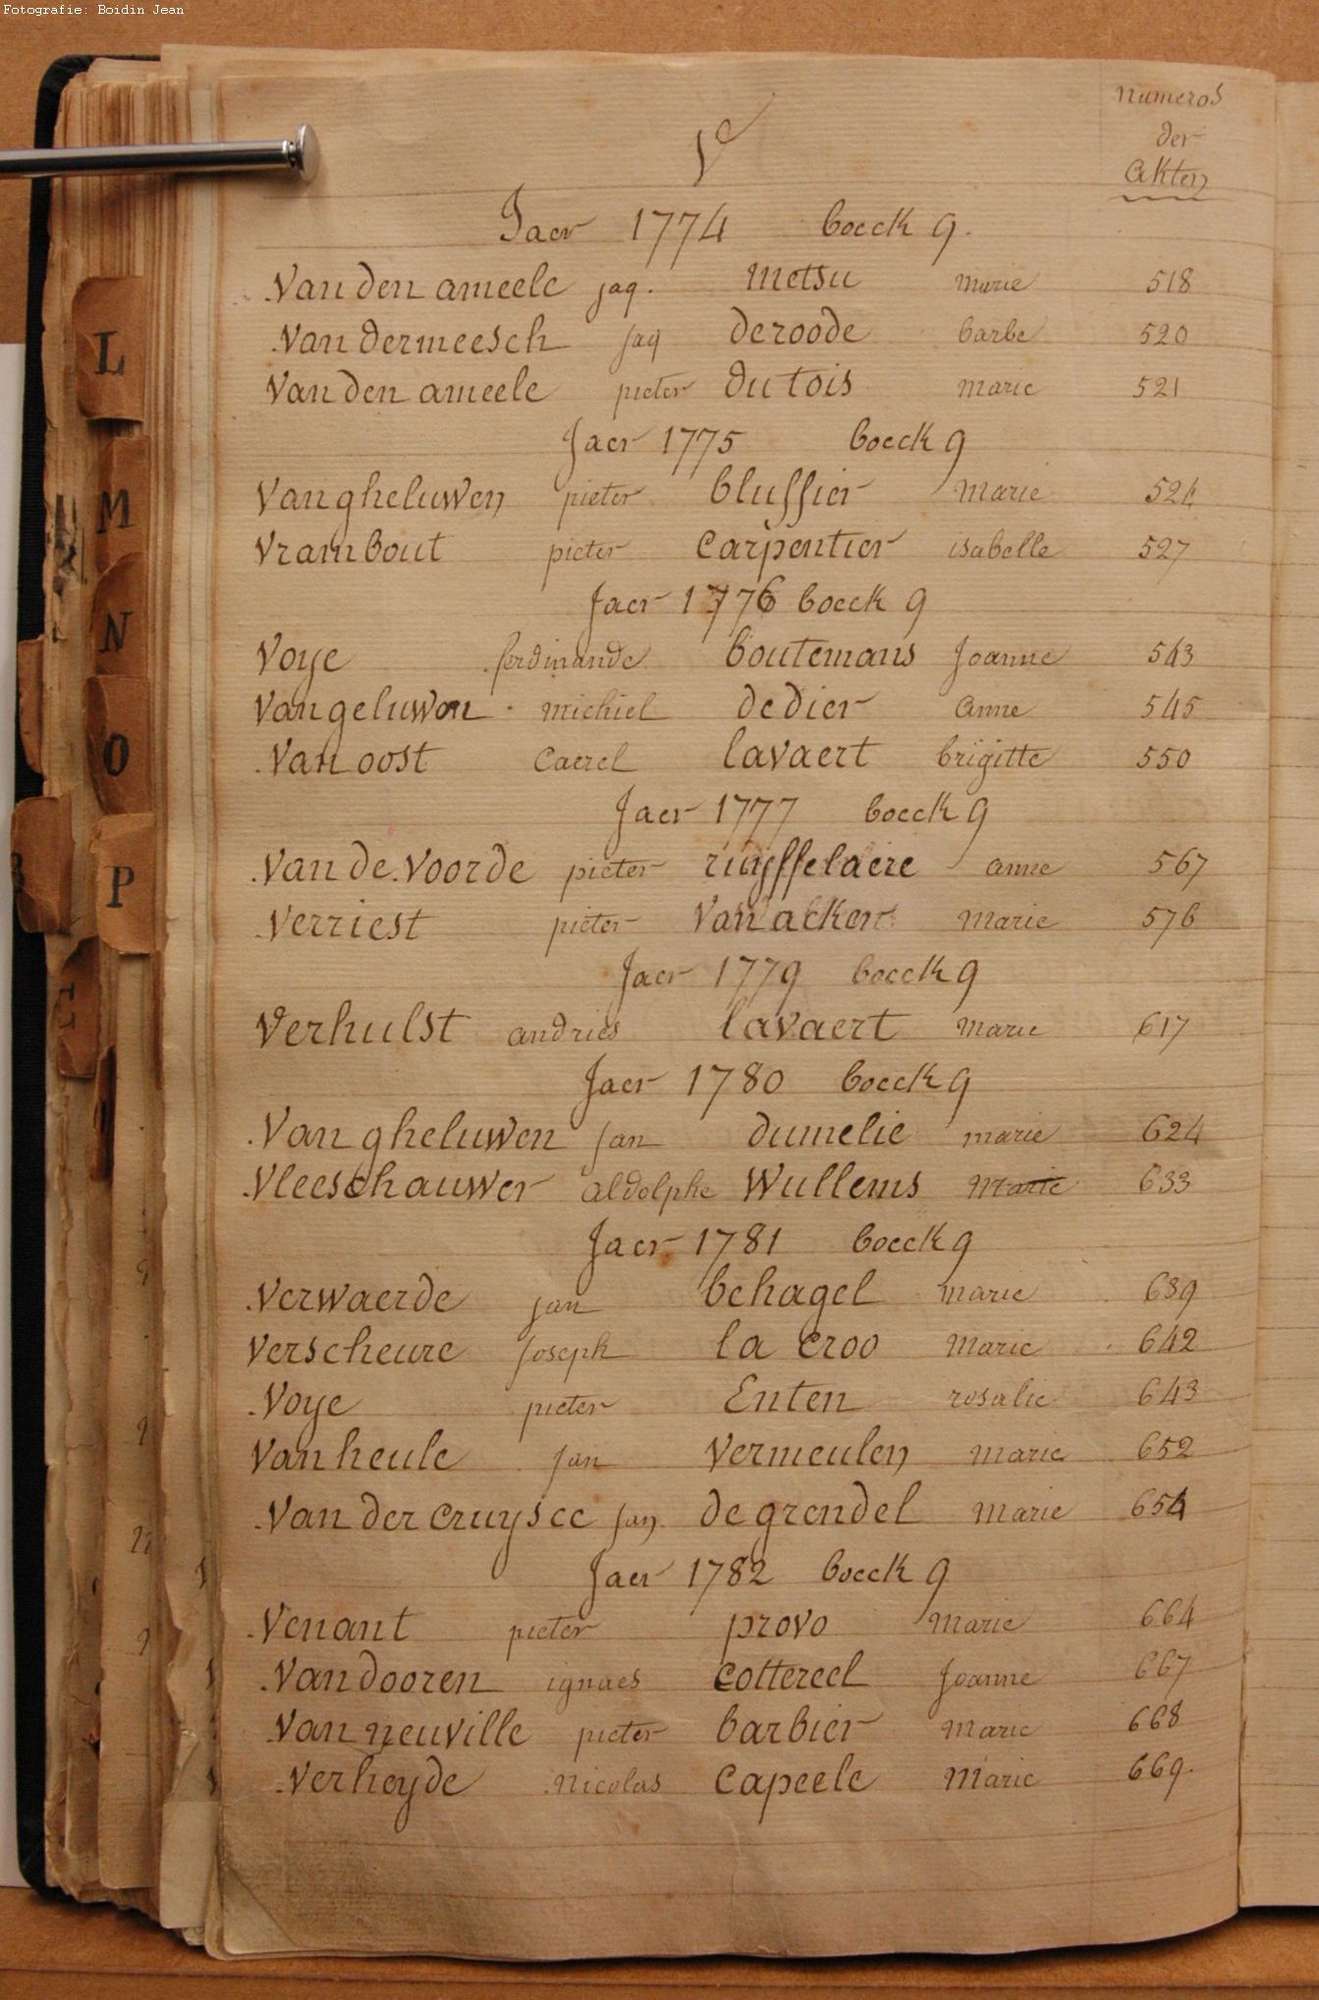 Fotografie: Boidin Jean
numeros
der
akten
V
Jaer 1774 boeck 9.
Van den ameele jaq. metsu marie 518
Van dermeesch jaq deroode barbe 520
Van den ameele pieter du tois marie 521
Jaer 1775 boeck 9
Van gheluwen pieter blussier marie 524
Vrambout pieter carpentier isabelle 527
Jaer 1776 boeck 9
Voye ferdinande boutemans Joanne 543
Van geluwen michiel dedier anne 545
Van oost Caerel lavaert brigitte 550
Jaer 1777 boeck 9
Van de Voorde pieter ruyffelaere anne 567
Verriest pieter Van acker marie 576
Jaer 1779 boeck 9
Verhulst andries lavaert marie 617
Jaer 1780 boeck 9
Van gheluwen Jan dumelie marie 624
Vleeschauwer aldolphe Wullems marie 633
Jaer 1781 boeck 9
Verwaerde jan behagel marie 639
Verscheure Joseph la croo marie 642
Voye pieter Enten rosalie 643
Van heule Jan Vermeulen marie 652
Van der cruysce Jan de grendel marie 654
Jaer 1782 boeck 9
Venant pieter provo marie 664
Van dooren ignaes cottereel Joanne 667
Van neuville pieter barbier marie 668
Verheyde Nicolas capeele marie 669
L
M
N
O
P